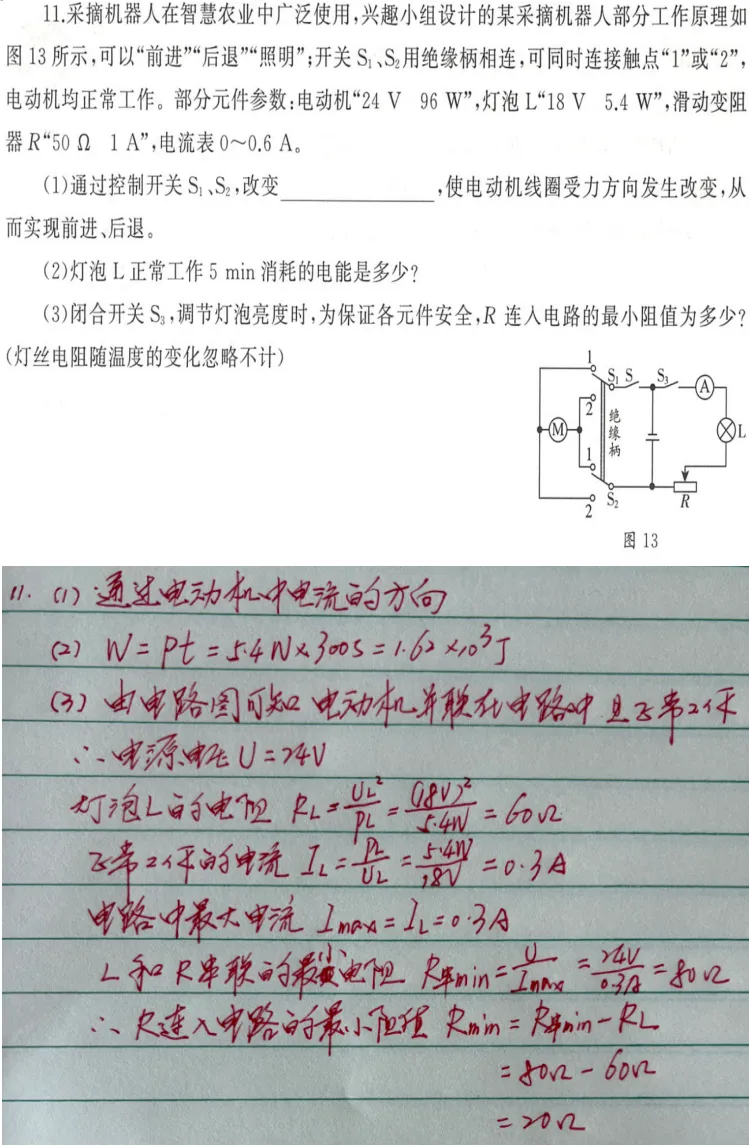 11.采摘机器人在智慧农业中广泛使用,兴趣小组设计的某采摘机器人部分工作原理如
图13所示,可以“前进”“后退”“照明”;开关S₁、S₂用绝缘柄相连,可同时连接触点“1”或“2”,
电动机均正常工作。部分元件参数:电动机“24 V 96 W”,灯泡L“18 V 5.4 W”,滑动变阻
器R“50 Ω 1 A”,电流表0～0.6 A。
(1)通过控制开关S₁、S₂,改变____________,使电动机线圈受力方向发生改变,从
而实现前进、后退。
(2)灯泡L正常工作5 min消耗的电能是多少?
(3)闭合开关S₃,调节灯泡亮度时,为保证各元件安全,R连入电路的最小阻值为多少?
(灯丝电阻随温度的变化忽略不计)
1
S₁ S S₃ A
2
M 绝缘柄 L
1
S₂ R
2
图13
11. (1) 通过电动机中电流的方向
(2) W=Pt=5.4W×300S=1.62×10³J
(3) 由电路图可知 电动机并联在电路中且正常工作
∴电源电压U=24V
灯泡L的电阻 R_L=U_L²/P_L=(18V)²/5.4W=60Ω
正常工作的电流 I_L=P_L/U_L=5.4W/18V=0.3A
电路中最大电流 Imax=I_L=0.3A
L和R串联的最小电阻 R串min=U/Imax=24V/0.3A=80Ω
∴R连入电路的最小阻值 Rmin=R串min-R_L
=80Ω-60Ω
=20Ω